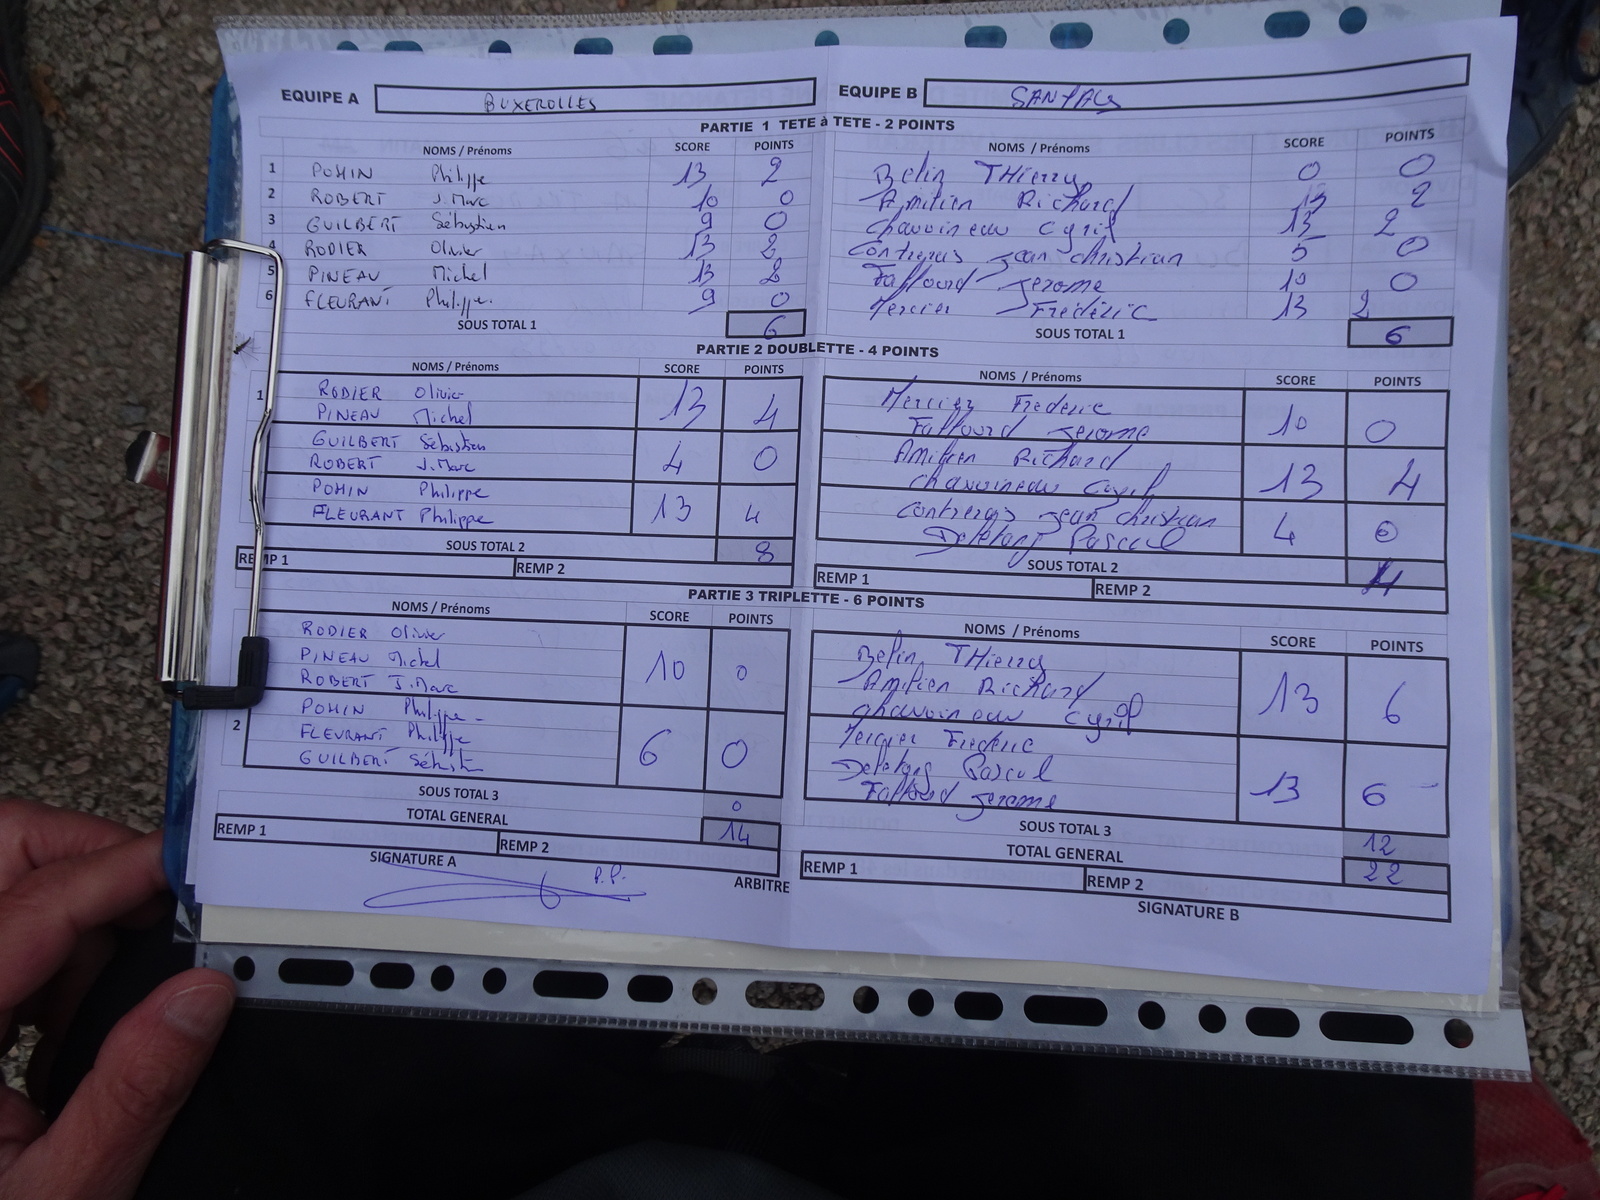 EQUIPE A BUXEROLLES EQUIPE B
PARTIE 1 TETE à TETE - 2 POINTS
NOMS / Prénoms SCORE POINTS NOMS / Prénoms SCORE POINTS
1 POHIN Philippe 13 2 Belin THierry 0 0
2 ROBERT J. Marc 10 0 Amilien Richard 13 2
3 GUILBERT Sébastien 9 0 Chauvineau Cyril 13 2
4 RODIER Olivier 13 2 Contreras Jean christian 5 0
5 PINEAU Michel 13 2 Jerome 10 0
6 FLEURANT Philippe. 9 0 Mercier Frédéric 13 2
SOUS TOTAL 1 6 SOUS TOTAL 1 6
PARTIE 2 DOUBLETTE - 4 POINTS
NOMS / Prénoms SCORE POINTS NOMS / Prénoms SCORE POINTS
1 RODIER Olivier 13 4 Mercier Frederic 10 0
PINEAU Michel Jerome
GUILBERT Sébastien 4 0 Amilien Richard 13 4
ROBERT J. Marc Chauvineau Cyril
POHIN Philippe 13 4 Contreras Jean christian 4 0
FLEURANT Philippe Pascal
SOUS TOTAL 2 8 SOUS TOTAL 2 4
REMP 1 REMP 2 REMP 1 REMP 2
PARTIE 3 TRIPLETTE - 6 POINTS
NOMS / Prénoms SCORE POINTS NOMS / Prénoms SCORE POINTS
RODIER Olivier 10 0 Belin THierry 13 6
PINEAU Michel Amilien Richard
ROBERT J. Marc Chauvineau Cyril
2 POHIN Philippe 6 0 Mercier Frederic 13 6
FLEURANT Philippe Pascal
GUILBERT Sébastien Jerome
SOUS TOTAL 3 0 SOUS TOTAL 3 12
TOTAL GENERAL 14 TOTAL GENERAL 22
REMP 1 REMP 2 REMP 1 REMP 2
SIGNATURE A P.P. ARBITRE SIGNATURE B